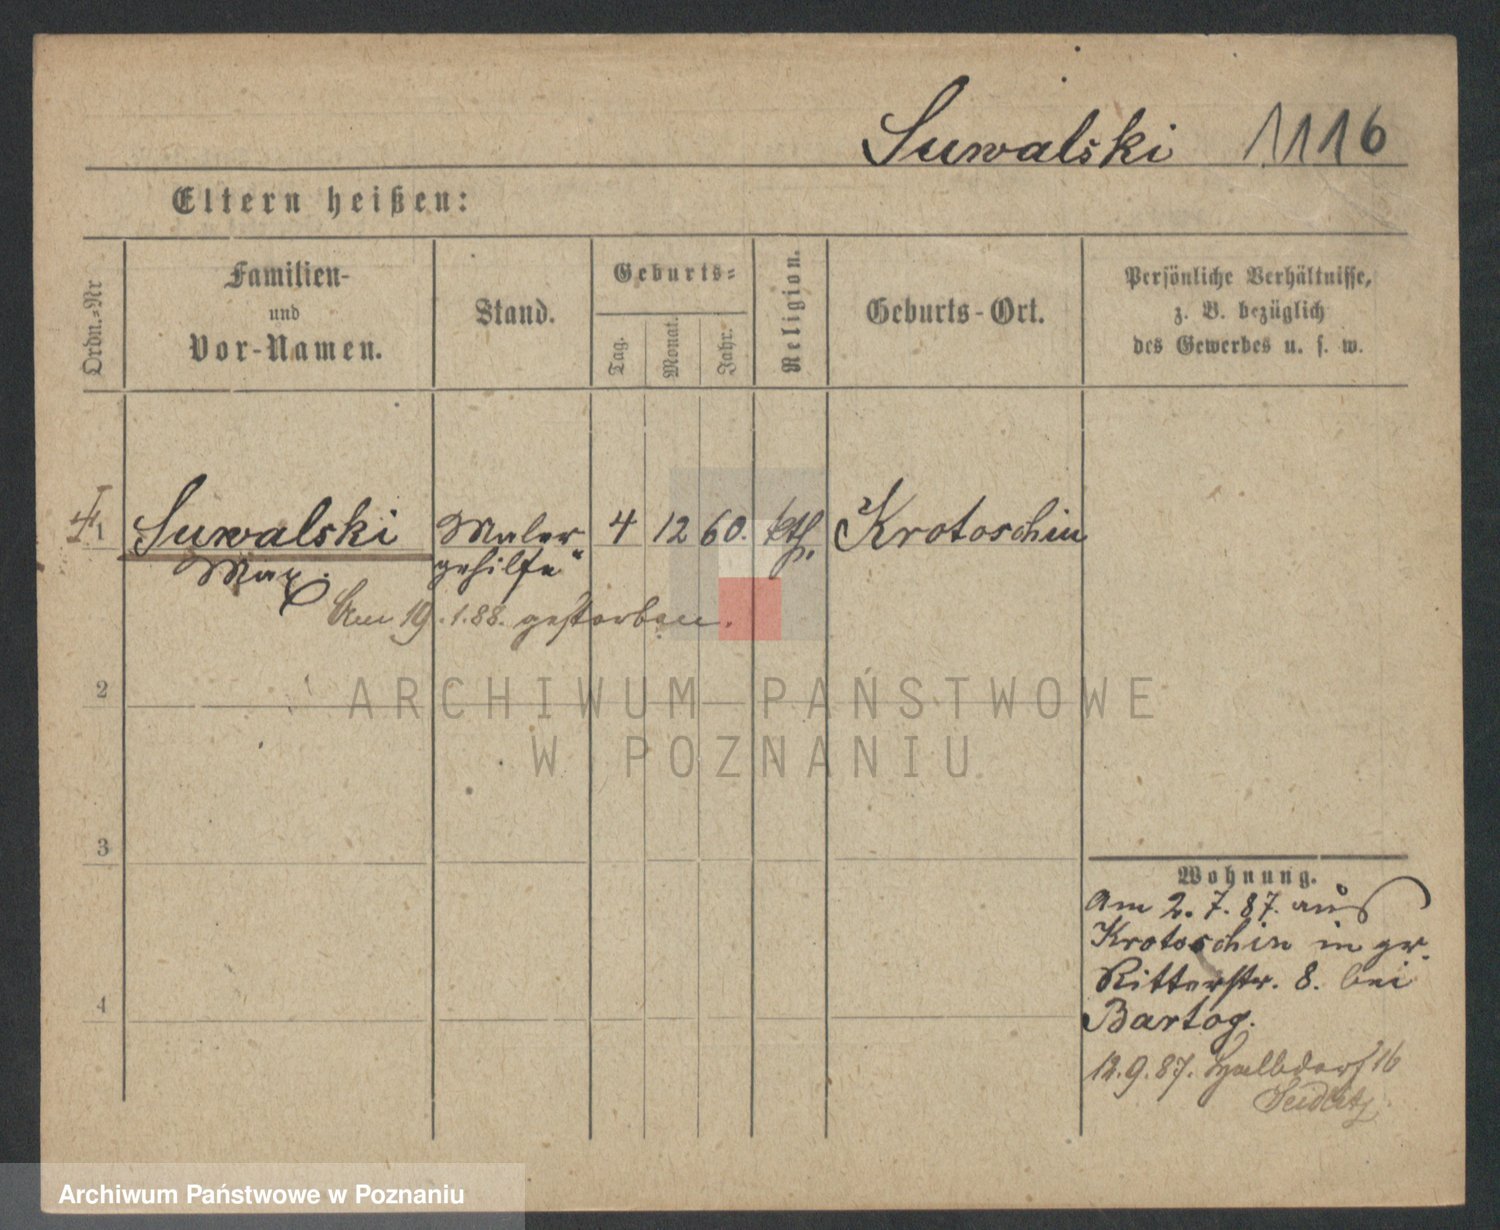 Suwalski 1116
Eltern heißen:
Ordn.-Nr
Familien-
und
Vor-Namen.
Stand.
Geburts-
Tag.
Monat.
Jahr.
Religion.
Geburts-Ort.
Persönliche Verhältnisse,
z. B. bezüglich
des Gewerbes u. s. w.
1 Suwalski Maler 4 12 60. kth. Krotoschin
Max. gehilfe
Am 19.1.88. gestorben.
2
3
4
Wohnung.
Am 2.7.87. aus
Krotoschin in gr.
Ritterstr. 8. bei
Bartog.
12.9.87. Halbdorf 16
Seidlitz
ARCHIWUM PAŃSTWOWE
W POZNANIU
Archiwum Państwowe w Poznaniu